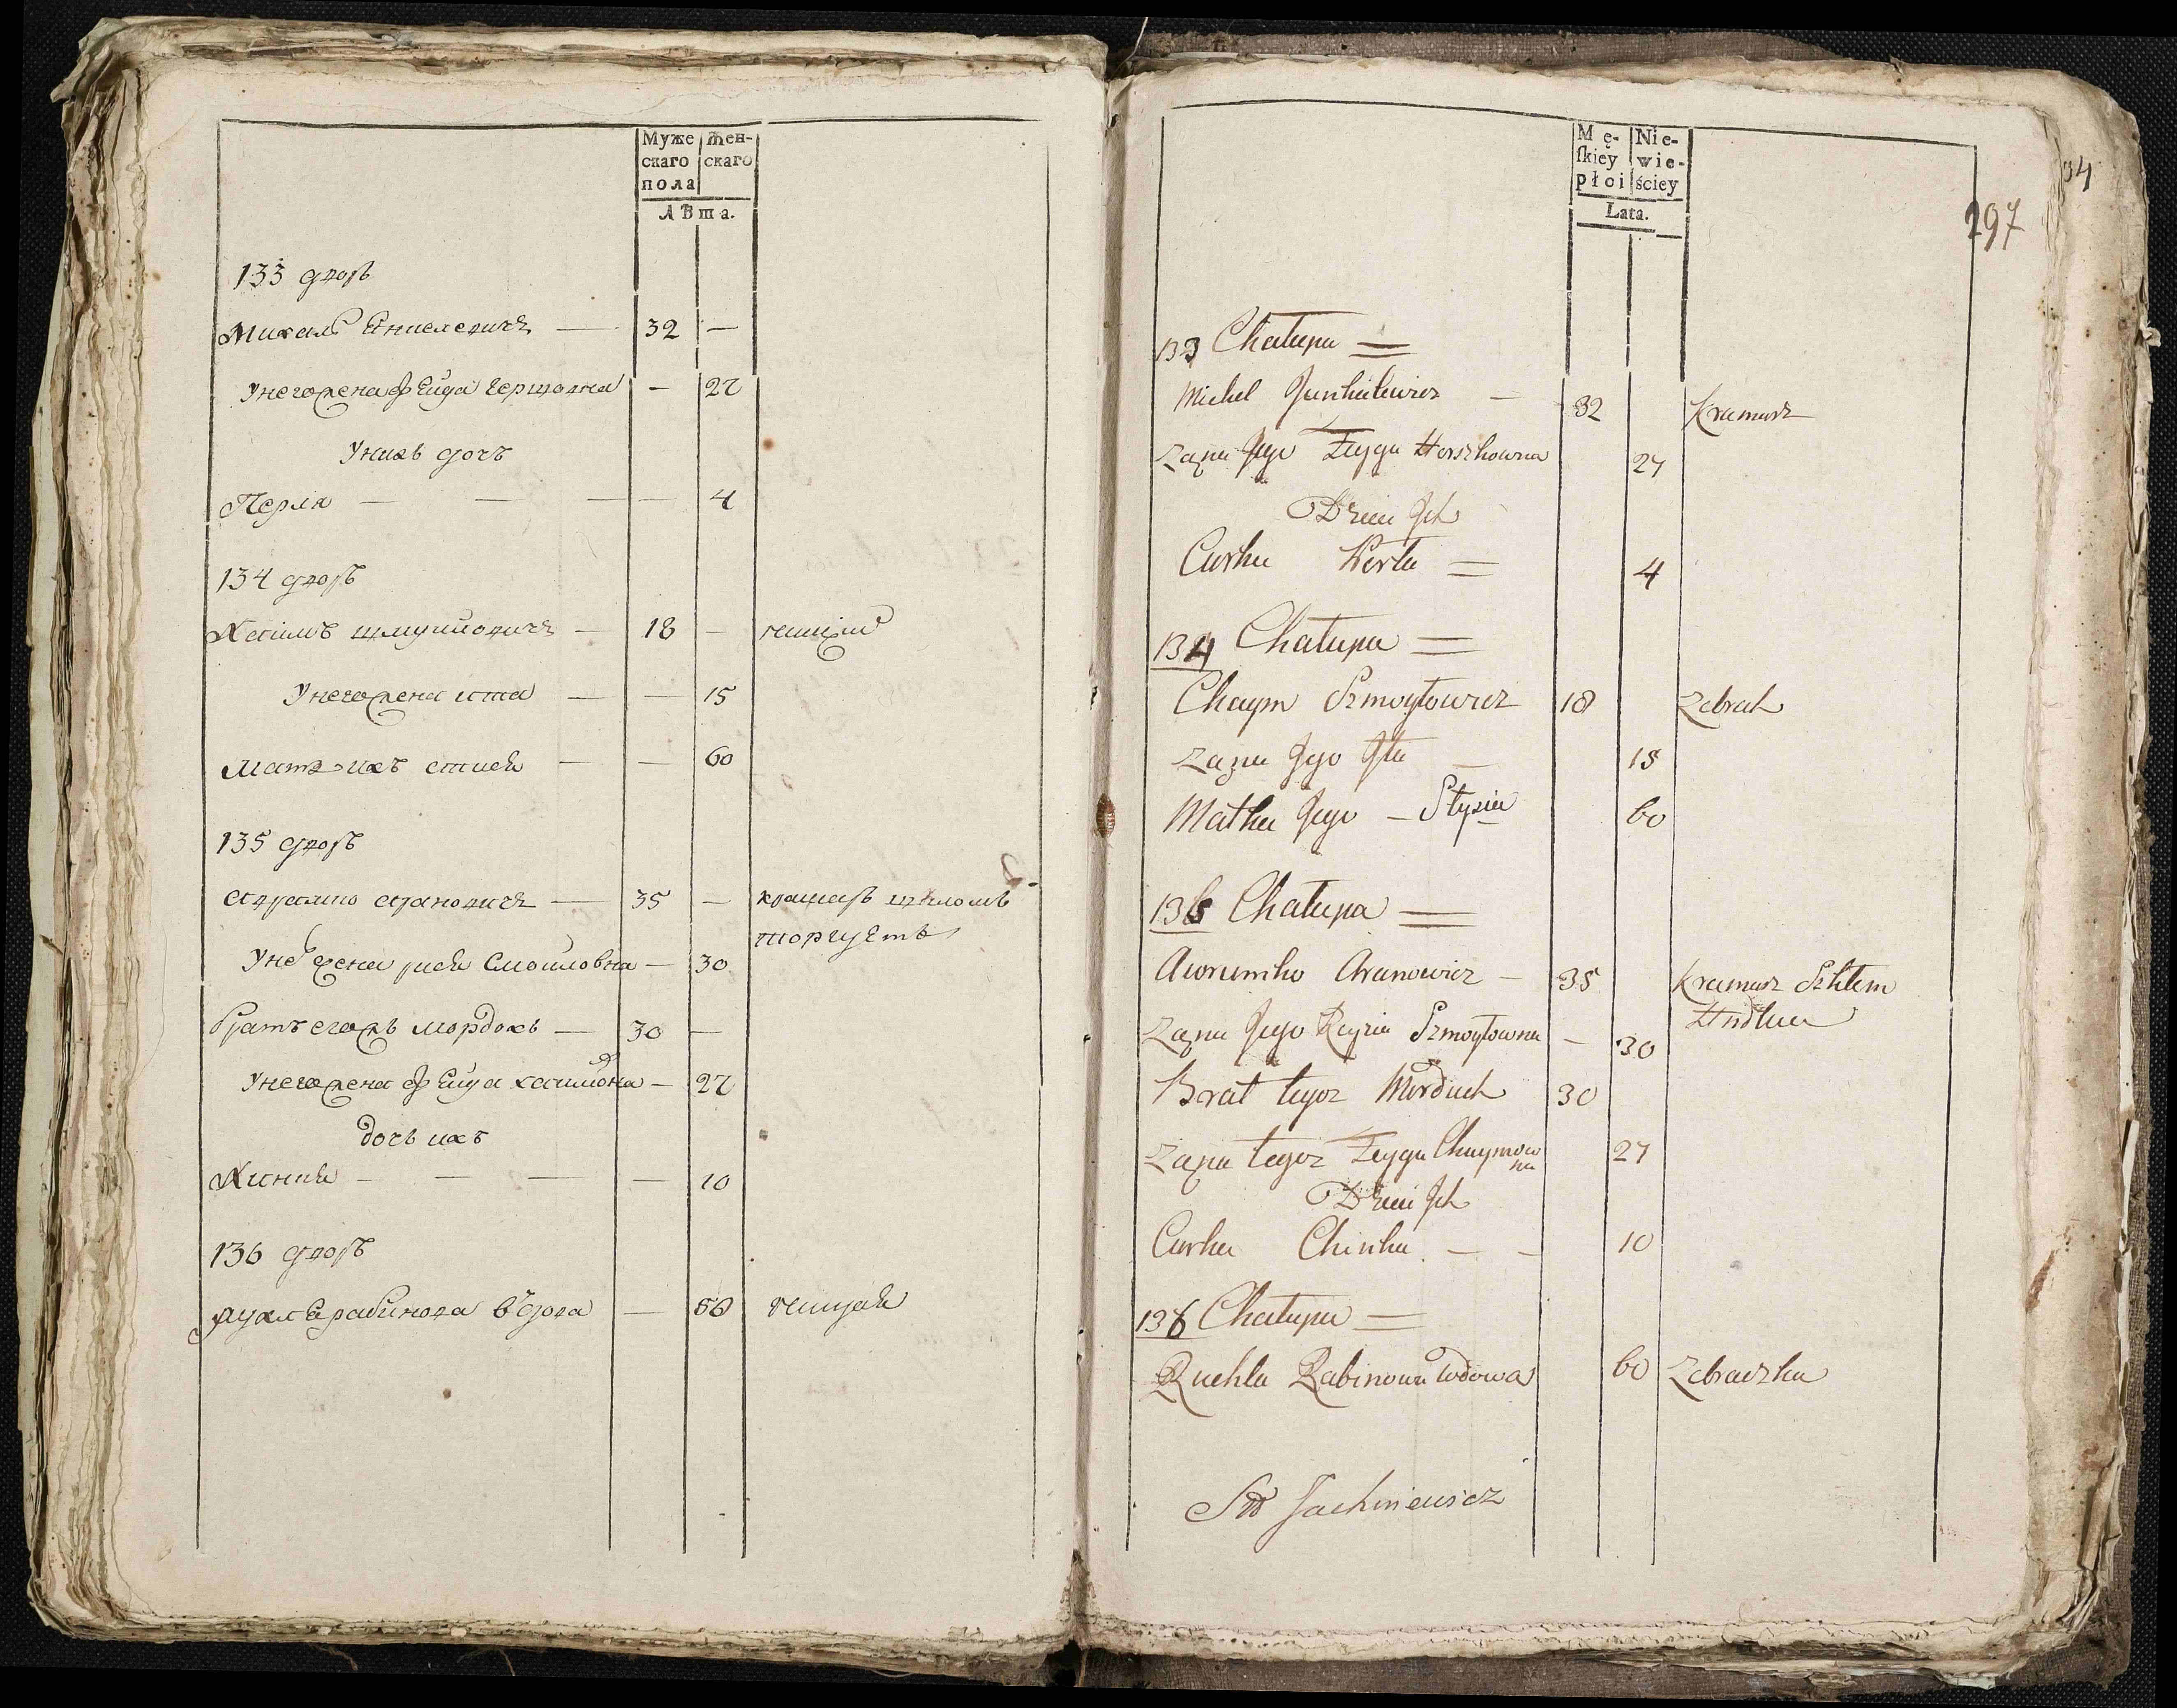 Муже Жен-
скаго скаго
пола
Лѣта.
133 дворъ
Михель — 32 —
у него жена Фейда Гершовна — 27
у нихъ дочь
Перля — — — — 4
134 дворъ
Хаимъ Шмуйловичъ — 18 — нищій
у него жена Ита — — 15
мать ихъ Стися — — 60
135 дворъ
Аврамко Арановичъ — 35 — крамарь шкломъ
торгуетъ
у него жена Рися Смойловна — 30
братъ егожъ Мордохъ — 30 —
у него жена Фейда Хаимовна — 27
дочь ихъ
Хинка — — — — 10
136 дворъ
Рухля Рабинова вдова — 50 нищая
Mę- Nie-
ſkiey wie-
płci ściey
Lata.
34
297
133 Chałupa =
Michel — 32 Kramarz
Zaona Jego Feyga Herszkowna 27
Dzieci Ich
Curka Perla = 4
134 Chałupa =
Chaym Szmoyłowicz 18 Zebrak
Zona Jego Ita — 15
Matka Jego — Stysia 60
135 Chałupa =
Awramko Aranowicz — 35 Kramarz Szkłem
Handluie
Zona Jego Rayzia Szmoyłowna — 30
Brat tegoz Morduch 30
Zona tegoz Feyga Chaymow
na 27
Dzieci Ich
Curka Chinka — — 10
136 Chałupa =
Ruchla Rabinowa wdowa 60 Zebraczka
Jachniewicz